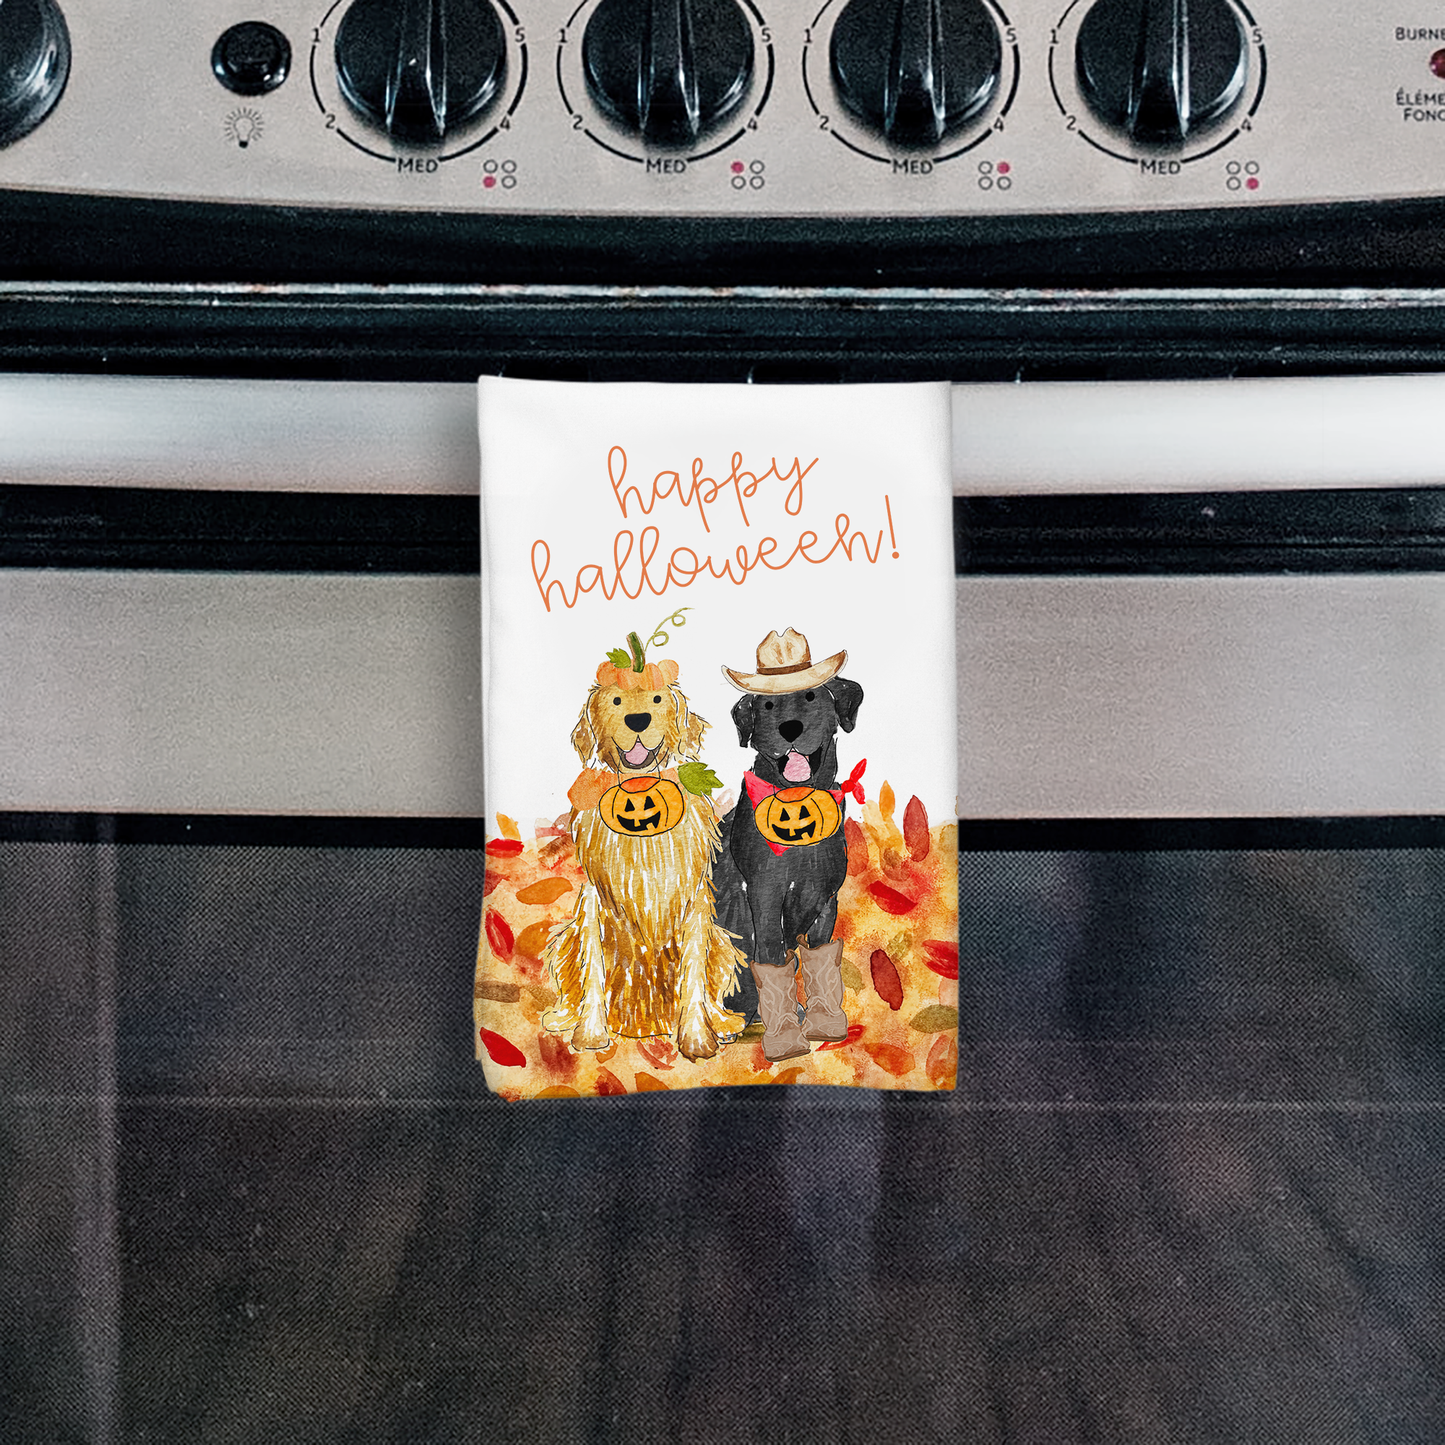 1 5 1 5 1 5 1 5
2 4 2 4 2 4 2 4
MED MED MED MED
BURNE
ÉLÉME
FONC
happy
halloween!